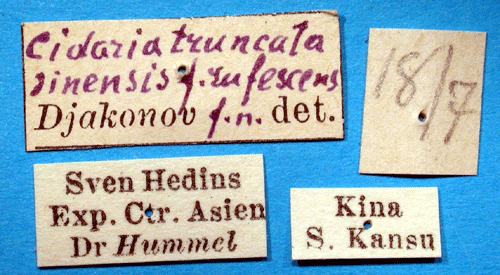 Cidaria truncata
sinensis f. rufescens
Djakonov f.n. det.
18/7
Sven Hedins
Exp. Ctr. Asien
Dr Hummel
Kina
S. Kansu